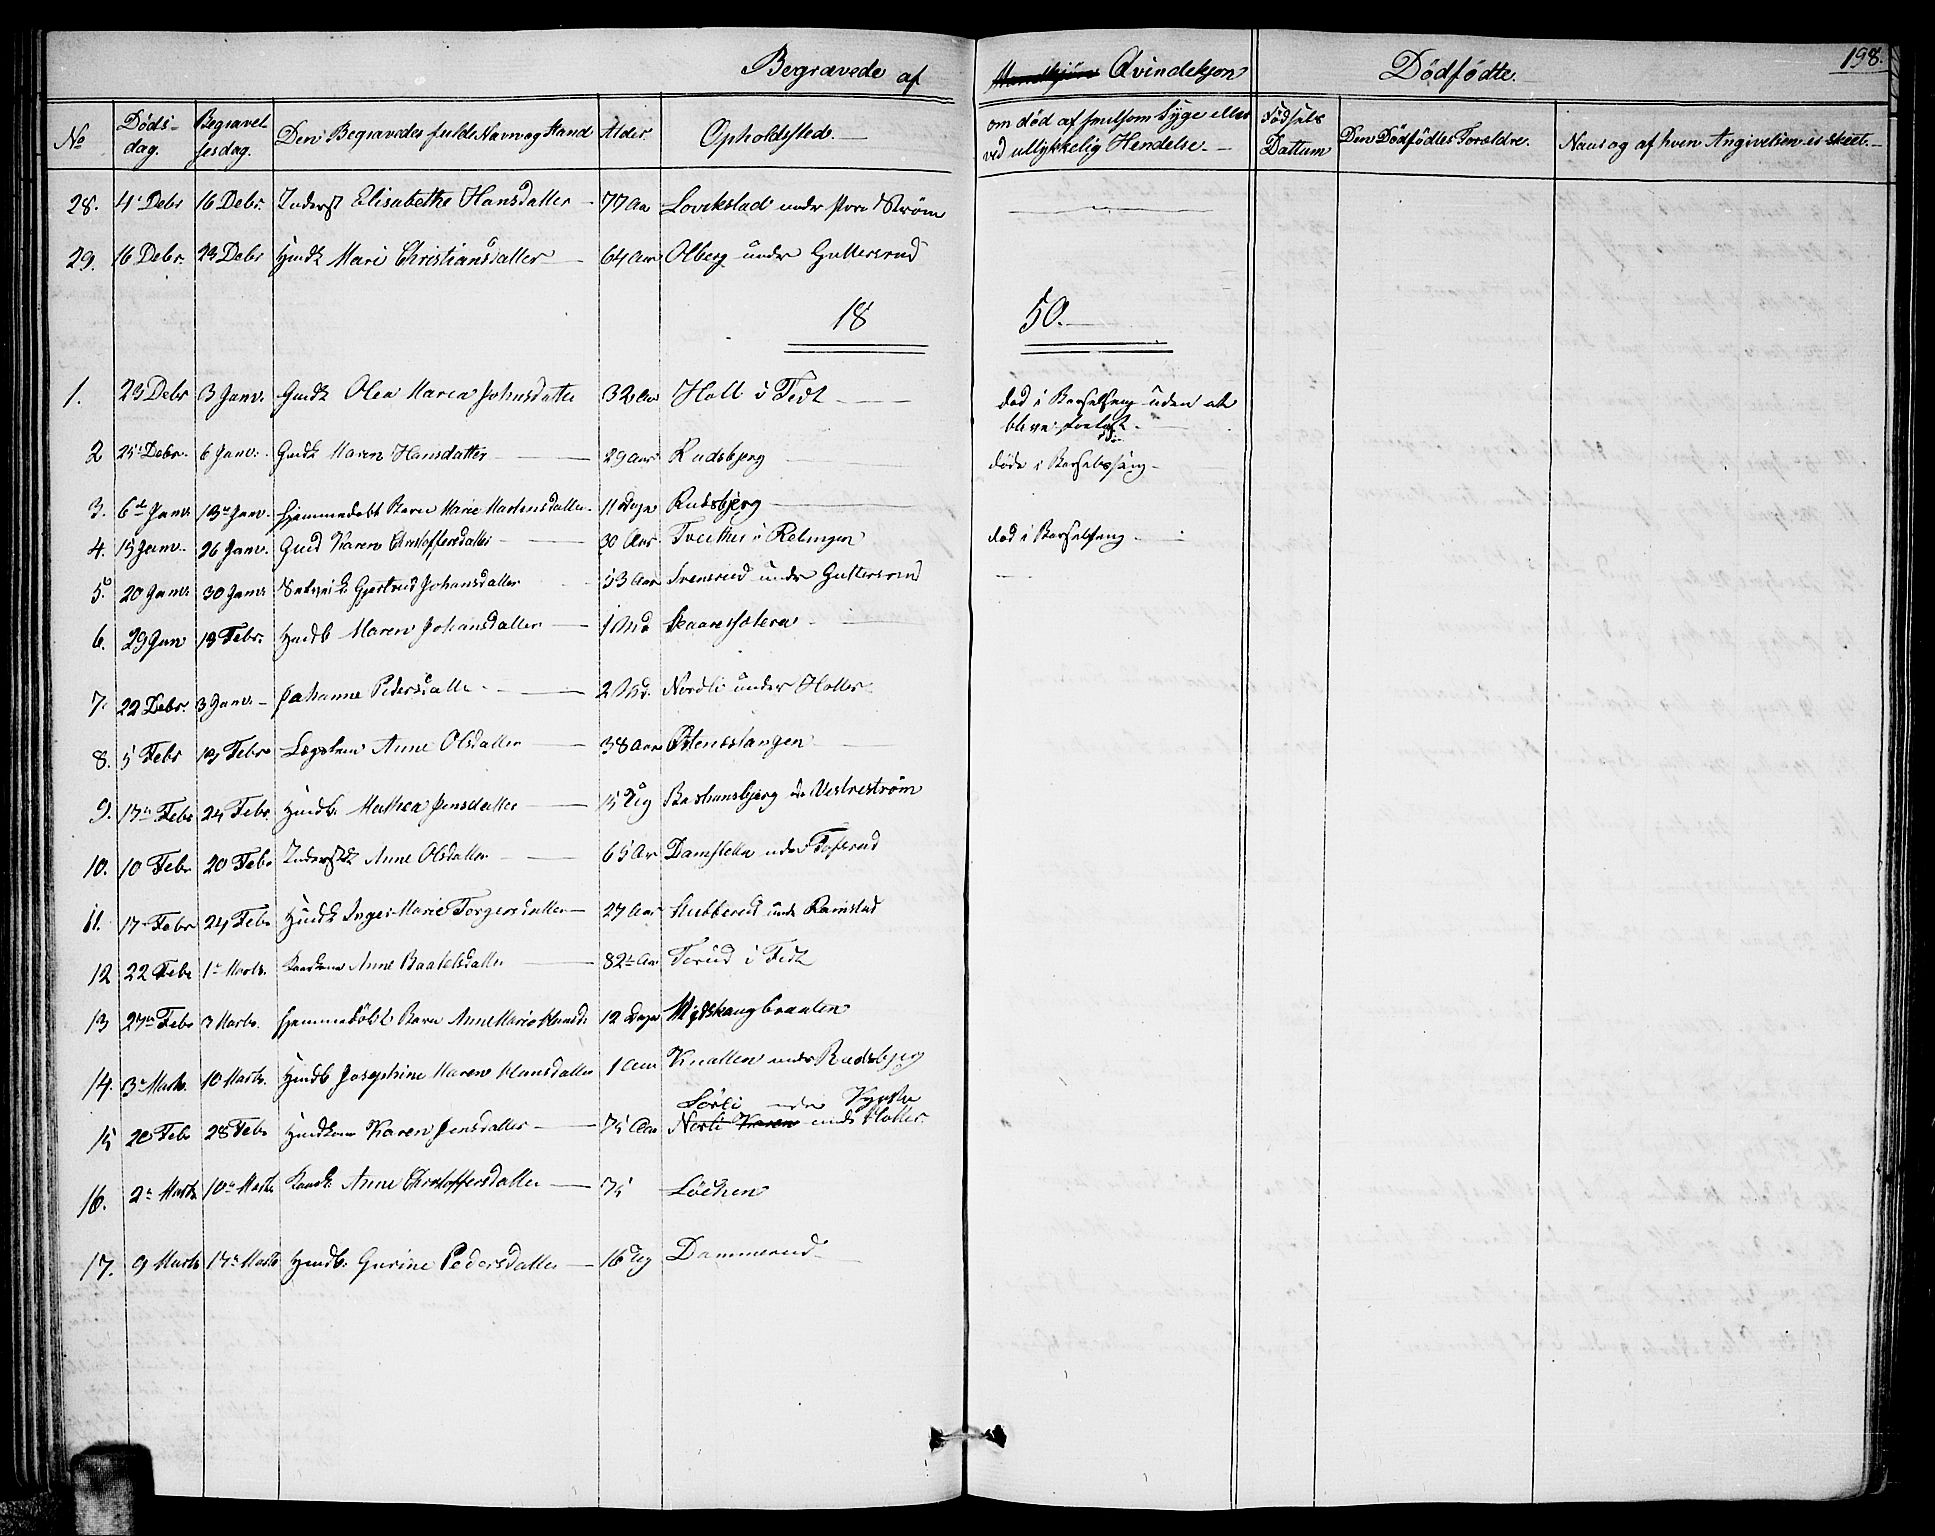 198.
Begravede af Mandkjøn Qvindekjøn Dødfødte.
No Døds-dag. Begravelsesdag. Den Begravedes fulde Navn og Stand Alder. Opholdssted. om død af smitsom Syge eller ved ullykkelig Hendelse. Fødsels Dattum Den Dødfødtes Forældre. Naar og af hvem Angivelsen er skeet.
28. 4 Debr 16 Debr. Inderst Elisabethe Hansdatter 77 Aar under Strøm
29. 16 Debr. 23 Debr Huusk Mari Christiansdatter 64 Aar Olberg under Guttersrud
18 50.
1. 23 Debr 3 Janr. Gaardk Olea Maria Johnsdatter 32 Aar Holt i Fedt død i Barselseng uden at blive forløst
2 25 Debr. 6 Janr. Gaardk Maren Hansdatter 29 Aar Rudsbjerg døde i Barselsseng
3. 6te Janr. 13de Janr. hjemmedøbt Barn Marie Martinsdatter 11 Dage Rudsbjerg
4. 15 Janr. 26 Janr. Karen Christoffersdatter 30 Aar i død i Barselseng
5. 20 Janr 30 Janr Gjertrud Johansdatter 53 Aar Svensrud under Guttersrud
6. 29 Jan 13 Febr. Huusb Maren Johansdatter 1 Md Skaaressætera
7. 22 Debr. 3 Janr. Johanne Pedersdatter 2 Md. Nordli under Holter
8. 5 Febr 13 Febr Lægslem Anne Olsdatter 38 Aar Østenstangen
9. 17 Febr 24 Febr. Huusb. Mathea Jensdatter 15 Ug Vestreström
10. 10 Febr 20 Febr Inderstk Anne Olsdatter 65 Ar Damstella under Tofsrud
11. 17 Febr 24 Febr Huusk Inger Marie Torgersdatter 27 Aar Stubberud unde Ramstad
12 22 Febr 1 Marts. Anne Baatelsdatter 82 Aar i Fedt
13 27 Febr 3 Marts. hjemmedøbt Barn Anne Marie Hansd. 12 Dage Midskaugbraaten
14. 3 Marts. 10 Marts. Huusb Josephine Maren Hansdatter 1 Aar Knatten under Rudsbjerg
15 20 Febr 28 Febr Karen Jensdatter 75 Aar under under Holter.
16. 2 Marts 10 Marts Anne Christoffersdatter 75 Løchen
17. 9 Marts 17 Marts Huusb. Gurine Pedersdatter 16 Ug Dammerud